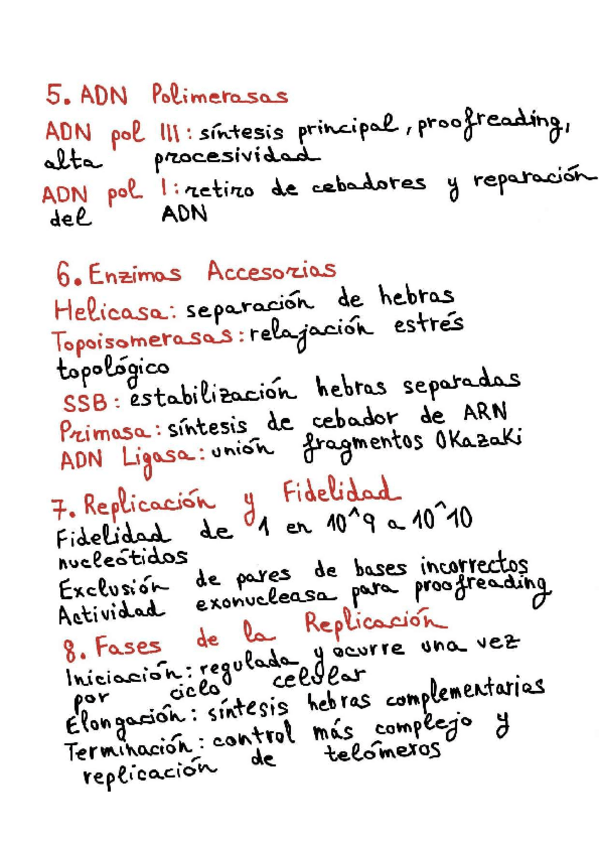 5. ADN Polimerasas
ADN pol III: síntesis principal, proofreading,
alta procesividad
ADN pol I: retiro de cebadores y reparación
del ADN
6. Enzimas Accesorias
Helicasa: separación de hebras
Topoisomerasas: relajación estrés
topológico
SSB: estabilización hebras separadas
Primasa: síntesis de cebador de ARN
ADN Ligasa: unión fragmentos Okazaki
7. Replicación y Fidelidad
Fidelidad de 1 en 10^9 a 10^10
nucleótidos
Exclusión de pares de bases incorrectos
Actividad exonucleasa para proofreading
8. Fases de la Replicación
Iniciación: regulada y ocurre una vez
por ciclo celular
Elongación: síntesis hebras complementarias
Terminación: control más complejo y
replicación de telómeros